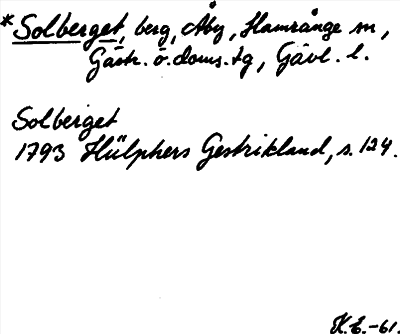 *Solberget, berg, Åby, Hamrånge sn,
Gästr. ö. doms. tg, Gävl. l.
Solberget
1793 Hülphers Gestrikland, s. 124.
K.E.-61.